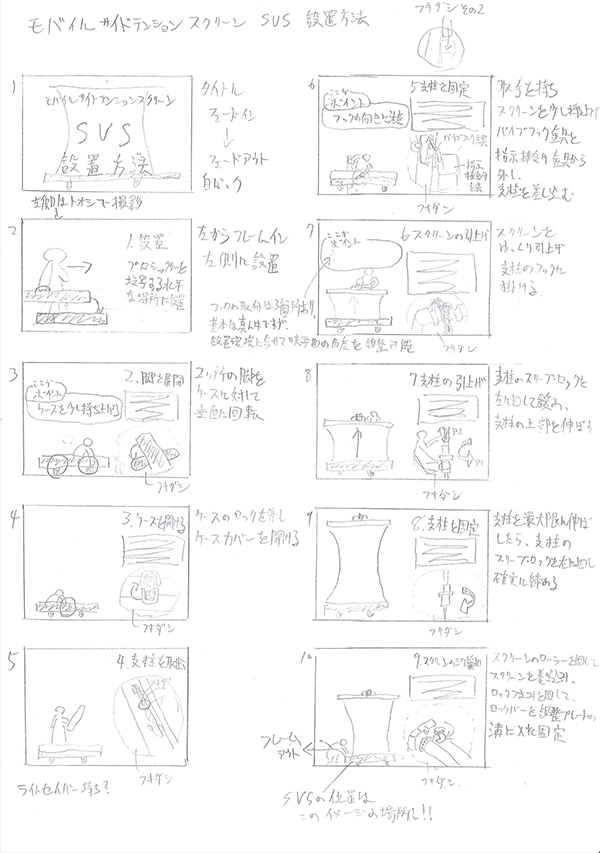 モバイルサイドテンションスクリーン SVS 設置方法
フキダシ その2
1
モバイルサイドテンションスクリーン
SVS
設置方法
タイトル
フェードイン
↓
フェードアウト
白バック
左側はトオシで撮影
2
1. 設置
プロジェクターを
設置する水平
な場所に設置
左からフレームイン
左側に設置
3
ここが
ポイント
ケースを少し持ち上げる
2. 脚を展開
フキダシ
2ヶ所の脚を
ケースに対して
垂直に回転
4
3. ケースを開ける
フキダシ
ケースのロックを外し
ケースカバーを開ける
5
4. 支柱を取出
フキダシ
ライトセイバー持ち?
6
ここが
ポイント
フックの向きに注意
5 支柱を固定
パイプフック金具
指示棒受け金具
フキダシ
取手を持ち
スクリーンを少し持上げ
パイプフック金具と
指示棒受け金具から
外し、
支柱を差し込む
7
ここが
ポイント
6 スクリーンの引上げ
フキダシ
スクリーンを
ゆっくり引上げ
支柱のフックに
掛ける
フックの取付は3箇所あり、
基本は真ん中ですが、
設置環境に合せて映写面の角度を調整可能
8
7. 支柱の引上げ
フキダシ
支柱のスリーブロックを
左に回して緩め、
支柱の上部を伸ばす
9
8. 支柱を固定
フキダシ
支柱を最大限伸ばし
したら、支柱の
スリーブロックを右に回し
確実に締める
10
フレーム
アウト
フキダシ
スクリーンのローラーを回して
ロックバーを調整プレートの
溝に入れ固定
SVSの位置は
このイメージの場所に!!